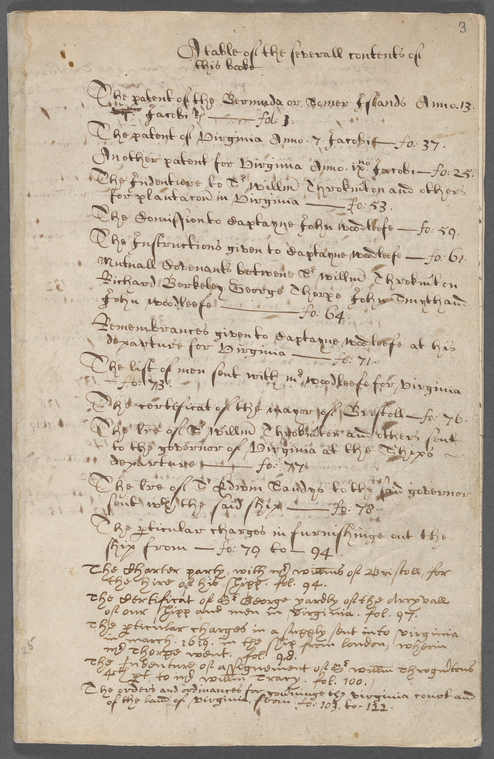 3
A table of the severall contents of
this booke
The patent of the Bermuda or Somer Islands Anno. 13.
Jacobi fol: 1.
The patent of Virginia Anno. 7. Jacobi fo: 37.
Another patent for Virginia Anno. ixno Jacobi fo: 25.
The Indenture to Sr Willm Throkmton and others
for plantacon in Virginia fo: 53.
The Comission to Captayne John Woodleefe fo: 59.
The Instructions given to Captayne woodleefe fo: 61.
Mutuall Covenants betweene Sr willm Throkmton
Richard Berkeley George Thorpe John Smyth and
John Woodleefe fo: 64
Remembrances given to Captayne wodleefe at his
departure for Virginia fo: 71.
The list of men sent with mr woodleefe for virginia
fo: 73.
The certificat of the mayor of Bristoll fo: 76.
The lre of Sr Willm Throkmton and others sent
to the governor of Virginia at the Shipps
departure fo: 77.
The lre of Sr Edwin Sandys to the said governor
sent wth the said ship fo: 78.
The pticular charges in furnishinge out the
ship from fo: 79 to 94.
The Charter party with mr willms of Bristoll, for
the hire of his shipp. fol. 94.
The Certificat of Sr George yardly of the arryvall
of our shipp and men in virginia. fol. 97.
The pticular charges in a supply sent into virginia
in march. 1619. in the ship from london, wherin
mr Thorpe went. fol. 98.
The Indenture of assignement of Sr willm Throgmtons
4th pt to mr willm Tracy. fol. 100.
The orders and ordinances for governinge the virginia court and
of the land of virginia, from fo: 103. to. 122.